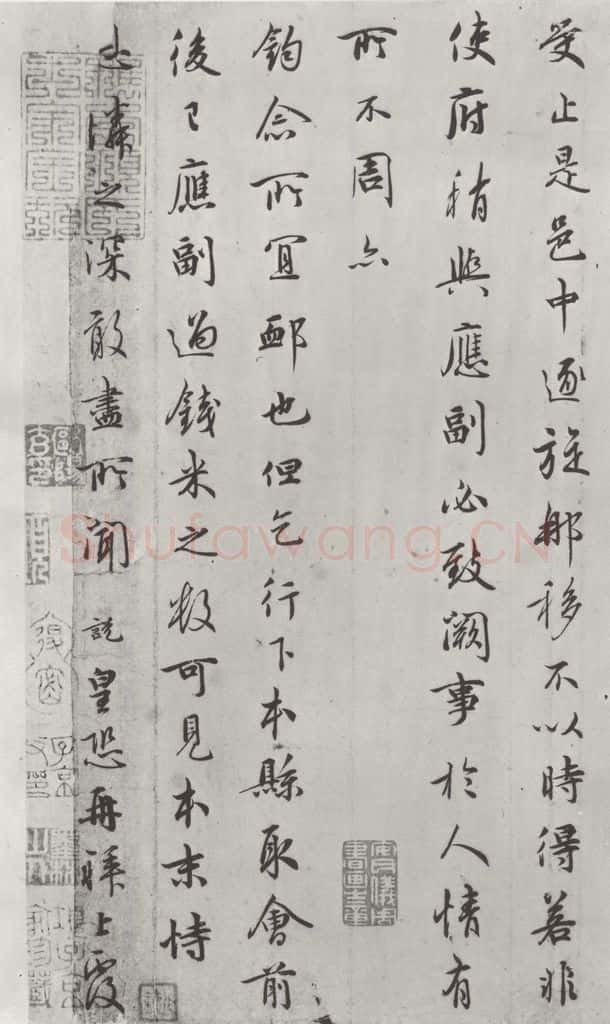 受止是邑中逐旋那移不以時得若非
使府稍與應副必致闕事於人情有
所不周亦
鈞念所宜郵也但乞行下本縣取會前
後已應副過錢米之數可見本末恃
憐之深敢盡所聞說皇恐再拜上覆
Shufawang.CN